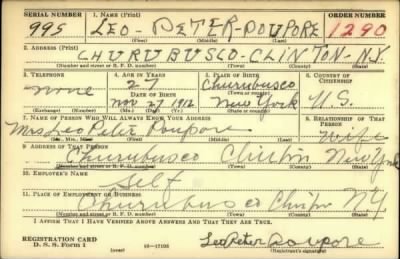 SERIAL NUMBER 1. NAME (Print) ORDER NUMBER
995 LEO - PETER - POUPORE 1290
(First) (Middle) (Last)
2. ADDRESS (Print)
CHURUBUSCO - CLINTON - N.Y.
(Number and street or R. F. D. number) (Town) (County) (State)
3. TELEPHONE 4. AGE IN YEARS 5. PLACE OF BIRTH 6. COUNTRY OF CITIZENSHIP
none 27 Churubusco
DATE OF BIRTH (Town or county)
Nov 27 1912 New York U.S.
(Exchange) (Number) (Mo.) (Day) (Yr.) (State or country)
7. NAME OF PERSON WHO WILL ALWAYS KNOW YOUR ADDRESS 8. RELATIONSHIP OF THAT PERSON
Mrs Leo Peter Poupore Wife
(Mr., Mrs., Miss) (First) (Middle) (Last)
9. ADDRESS OF THAT PERSON
Churubusco Clinton New York
(Number and street or R. F. D. number) (Town) (County) (State)
10. EMPLOYER'S NAME
Self
11. PLACE OF EMPLOYMENT OR BUSINESS
Churubusco Clinton N.Y.
(Number and street or R. F. D. number) (Town) (County) (State)
I AFFIRM THAT I HAVE VERIFIED ABOVE ANSWERS AND THAT THEY ARE TRUE.
REGISTRATION CARD
D. S. S. Form 1 (over) 16-17105 Leo Peter Poupore
(Registrant's signature)